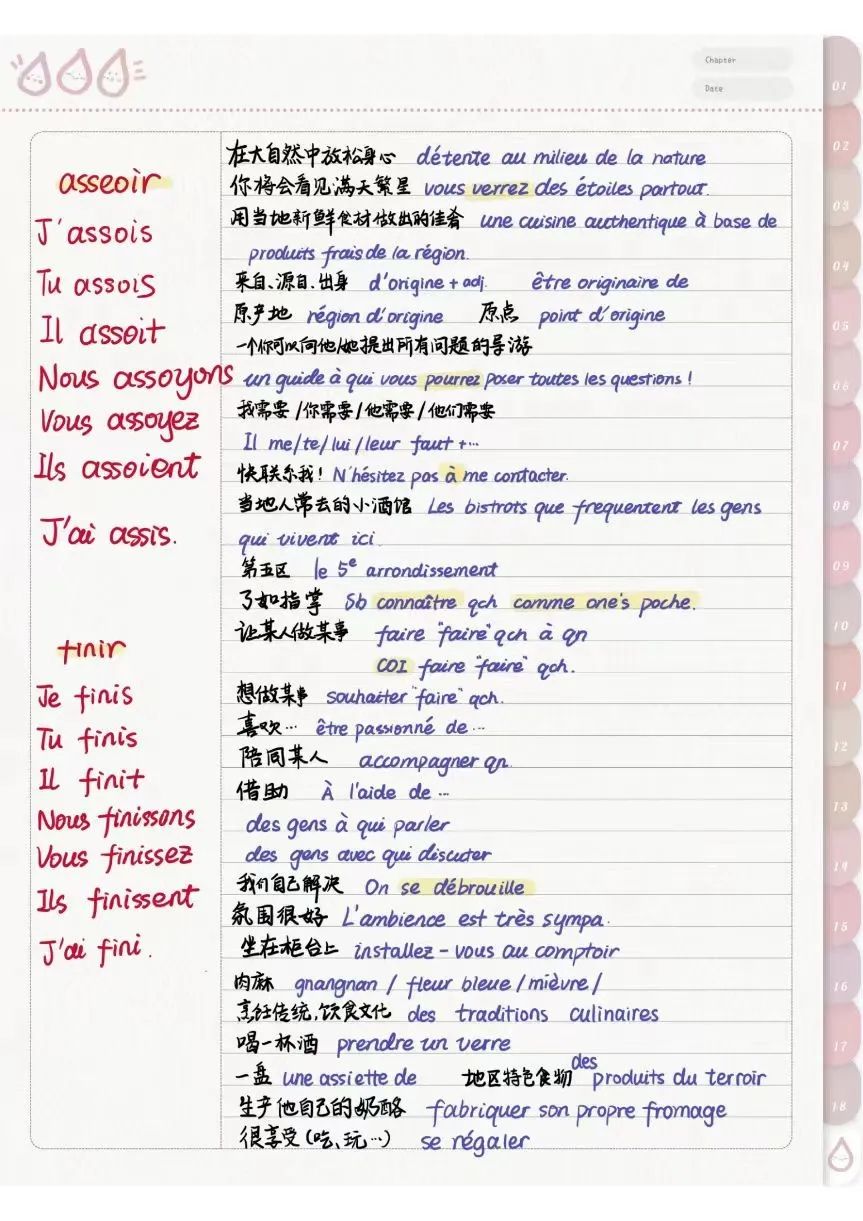 Chapter
Date
asseoir
J'assois
Tu assois
Il assoit
Nous assoyons
Vous assoyez
Ils assoient
J'ai assis.
finir
Je finis
Tu finis
Il finit
Nous finissons
Vous finissez
Ils finissent
J'ai fini.
在大自然中放松身心 détente au milieu de la nature
你将会看见满天繁星 vous verrez des étoiles partout.
用当地新鲜食材做出的佳肴 une cuisine authentique à base de
produits frais de la région.
来自、源自、出身 d'origine + adj. être originaire de
原产地 région d'origine 原点 point d'origine
一个你可以向他/她提出所有问题的导游
un guide à qui vous pourrez poser toutes les questions !
我需要 /你需要 /他需要 /他们需要
Il me/te/lui/leur faut +…
快联系我! N'hésitez pas à me contacter.
当地人常去的小酒馆 Les bistrots que frequentent les gens
qui vivent ici.
第五区 le 5e arrondissement
了如指掌 Sb connaître qch comme one's poche.
让某人做某事 faire "faire" qch à qn
COI faire "faire" qch.
想做某事 souhaiter "faire" qch.
喜欢… être passionné de …
陪同某人 accompagner qn.
借助 À l'aide de …
des gens à qui parler
des gens avec qui discuter
我们自己解决 On se débrouille
氛围很好 L'ambience est très sympa.
坐在柜台上 installez-vous au comptoir
肉麻 gnangnan / fleur bleue / mièvre /
烹饪传统,饮食文化 des traditions culinaires
喝一杯酒 prendre un verre
一盘 une assiette de 地区特色食物 des produits du terroir
生产他自己的奶酪 fabriquer son propre fromage
很享受(吃、玩…) se régaler
01
02
03
04
05
06
07
08
09
10
11
12
13
14
15
16
17
18